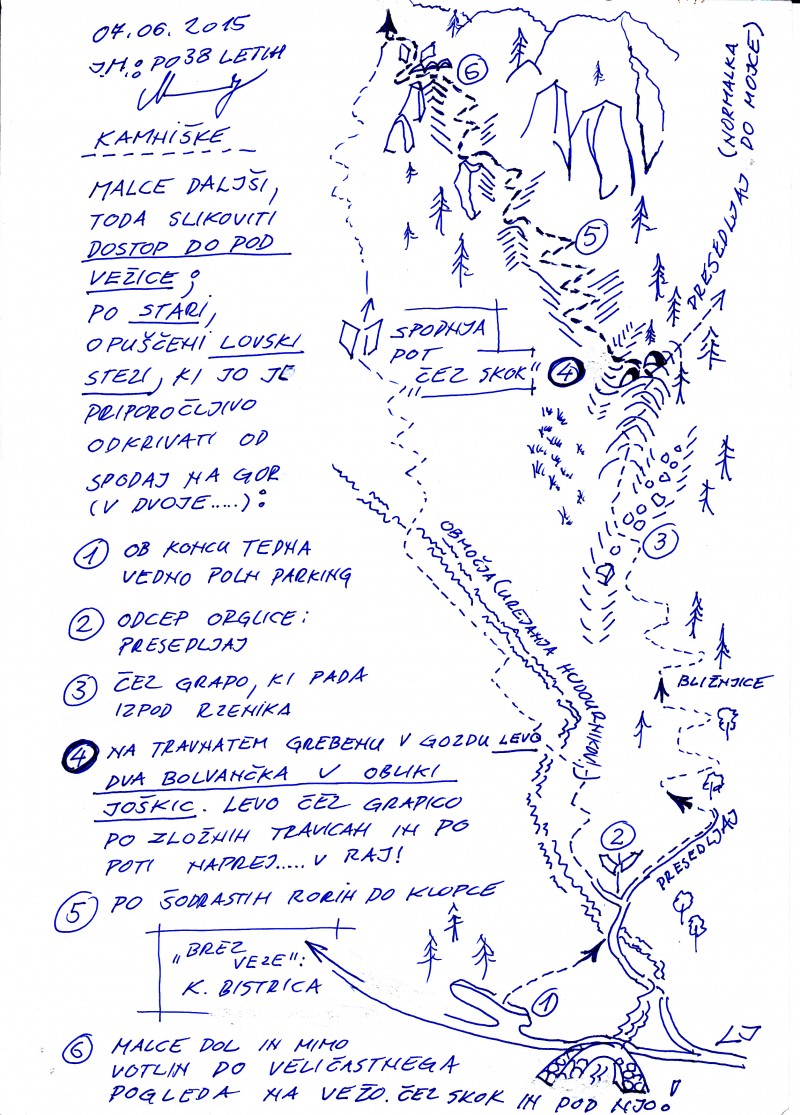 07.06.2015
J.M.: PO 38 LETIH
KAMNIŠKE
MALCE DALJŠI,
TODA SLIKOVITI
DOSTOP DO POD
VEŽICE;
PO STARI,
OPUŠČENI LOVSKI
STEZI, KI JO JE
PRIPOROČLJIVO
ODKRIVATI OD
SPODAJ NA GOR
(V DVOJE.....):
① OB KONCU TEDNA
VEDNO POLN PARKING
② ODCEP ORGLICE:
PRESEDLJAJ
③ ČEZ GRAPO, KI PADA
IZPOD RZENIKA
④ NA TRAVNATEM GREBENU V GOZDU LEVO
DVA BOLVANČKA V OBLIKI
JOŠKIC. LEVO ČEZ GRAPICO
PO ZLOŽNIH TRAVICAH IN PO
POTI NAPREJ..... V RAJ!
⑤ PO ŠODRASTIH RORIH DO KLOPCE
"BREZ
VEZE":
K. BISTRICA
⑥ MALCE DOL IN MIMO
VOTLIN DO VELIČASTNEGA
POGLEDA NA VEŽO. ČEZ SKOK IN POD NJO!
⑥
(NORMALKA
DO MOJCE)
PRESEDLJAJ
⑤
SPODNJA
POT
"ČEZ SKOK"
④
③
OBMOČJA (UREJANJA HUDOURNIKOV)
BLIŽNJICE
②
PRESEDLJAJ
①
LJ